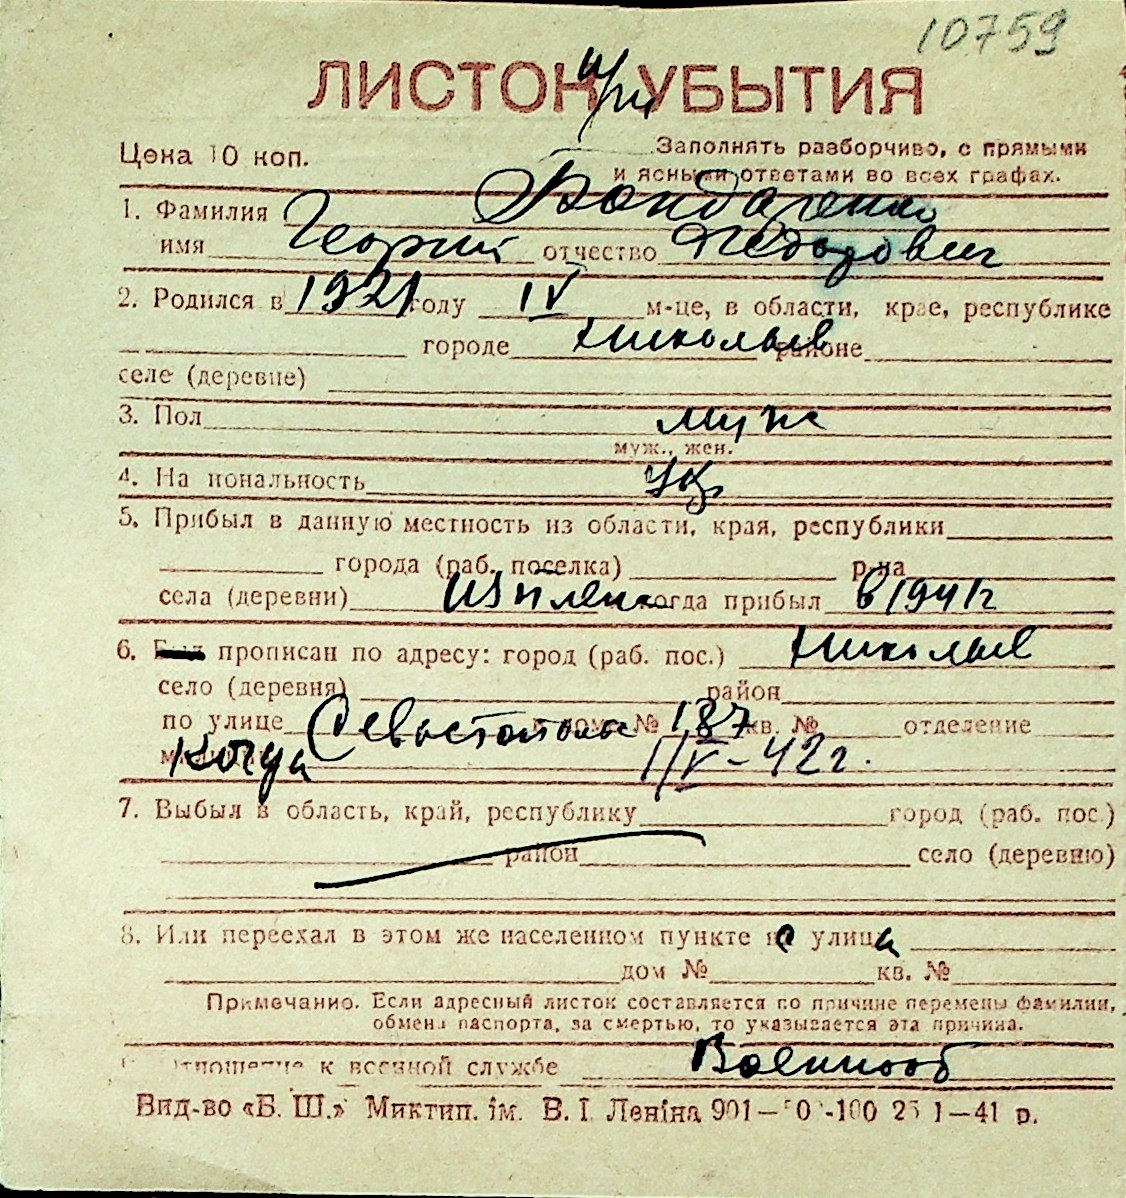 10759
ЛИСТОК УБЫТИЯ
при
Цена 10 коп.
Заполнять разборчиво, с прямыми
и ясными ответами во всех графах.
1. Фамилия Бондаренко
имя Георгий отчество Федорович
2. Родился в 1921 году IV м-це, в области, крае, республике
городе Николаев районе
селе (деревне)
3. Пол муж
муж., жен.
4. Национальность Укр.
5. Прибыл в данную местность из области, края, республики
города (раб. поселка) р-на
села (деревни) из плена когда прибыл в 1941 г
6. прописан по адресу: город (раб. пос.) Николаев
село (деревня) район
по улице Севастополь дом № 187 кв. № отделение
Когда 1/IV-42 г.
7. Выбыл в область, край, республику город (раб. пос.)
район село (деревню)
8. Или переехал в этом же населенном пункте с улица
дом № кв. №
Примечание. Если адресный листок составляется по причине перемены фамилии,
обмена паспорта, за смертью, то указывается эта причина.
Отношение к военной службе Военнооб
Вид-во «Б. Ш.» Миктип. ім. В. І. Леніна 901— -100 25 1—41 р.